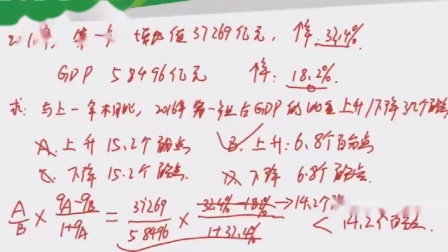 增值 37269亿元, 下降: 32.4%
GDP 58496亿元 下降: 18.2%.
求: 与上一年相比, 2016年第一 占GDP的比重上升/下降 个百分点
A. 上升 15.2个百分点 B. 上升: 6.8个百分点
C. 下降 15.2个百分点. D. 下降 6.8个百分点.
A/B × (qA-qB)/(1+qA) = 37269/58496 × (32.4%-18.2%)/(1+32.4%) → 14.2个
< 14.2个百分点.